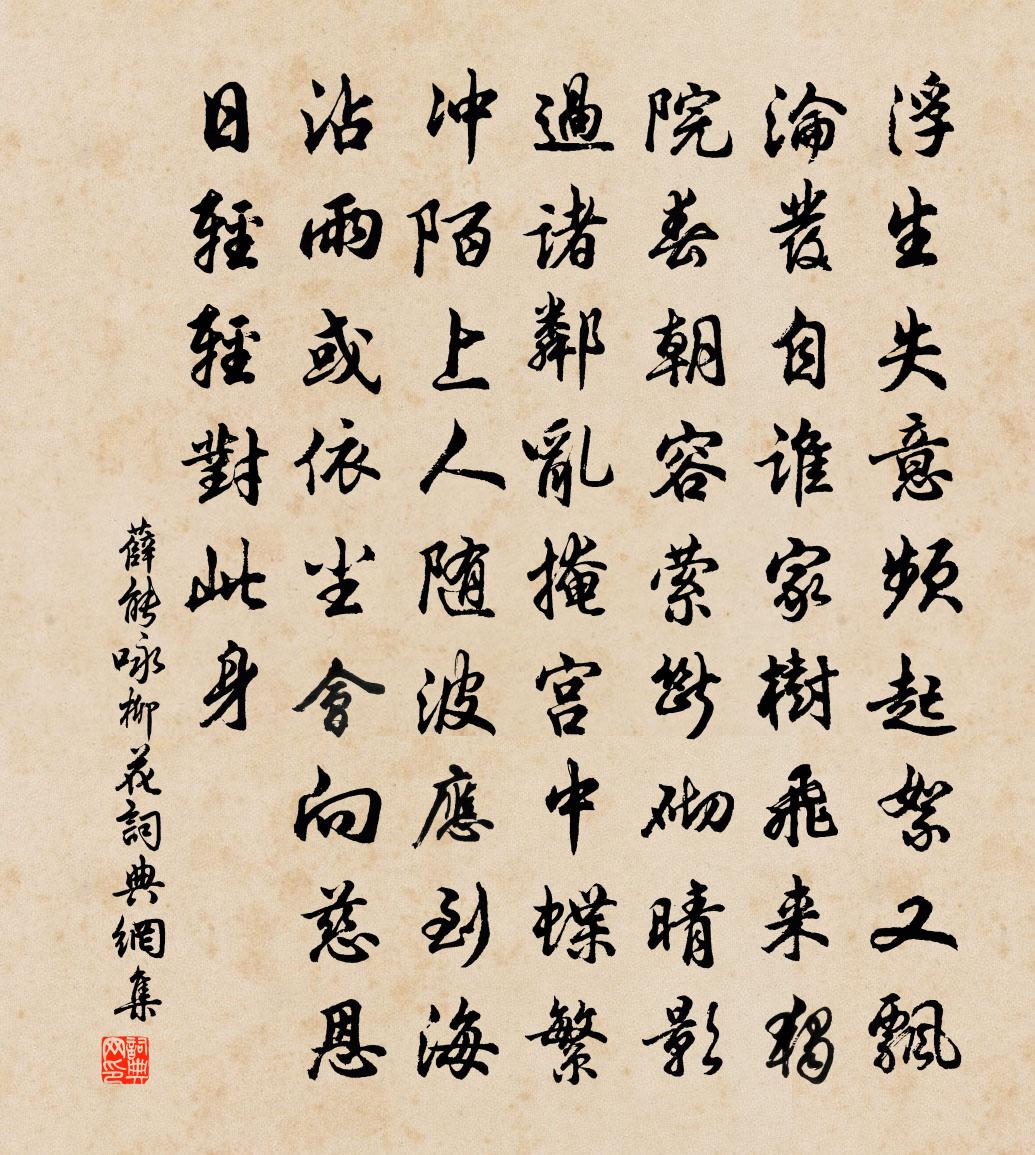 浮生失意頻起絮又飄
淪發自誰家樹飛来獨
院春朝容萦斷砌晴影
過諸鄰亂掩宫中蝶繁
冲陌上人随波應到海
沾雨或依尘會向慈恩
日輕輕對此身
薛能咏柳花詞典網集
詞典网印